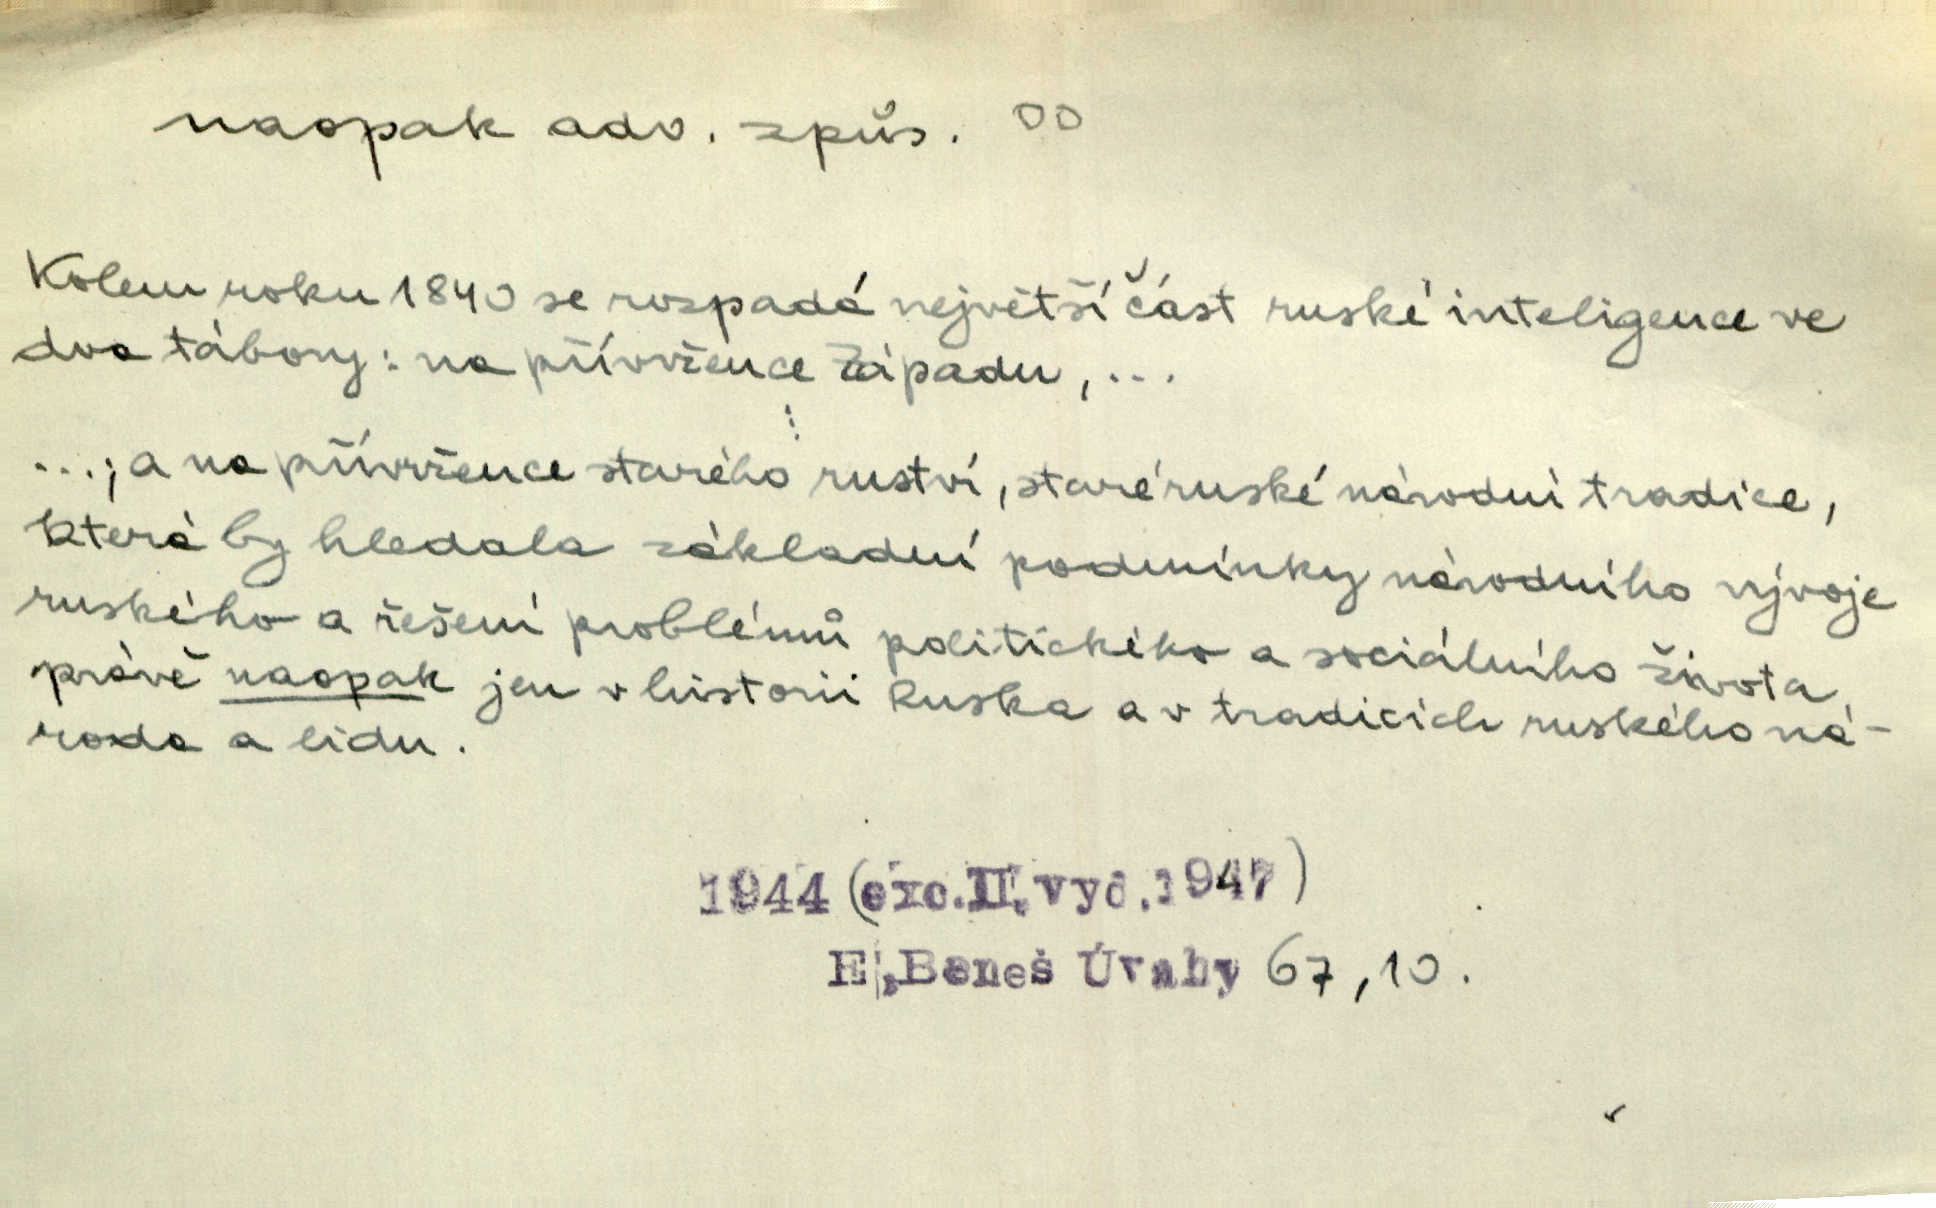 naopak adv. způs. 00
Kolem roku 1840 se rozpadá největší část ruské inteligence ve
dva tábory: na přívržence Západu, ...
...; a na přívržence starého ruství, staré ruské národní tradice,
která by hledala základní podmínky národního vývoje
ruského a řešení problémů politického a sociálního života
právě naopak jen v historii Ruska a v tradicích ruského ná-
roda a lidu.
1944 (exc. II. vyd. 1947)
E. Beneš Úvahy 67, 10.